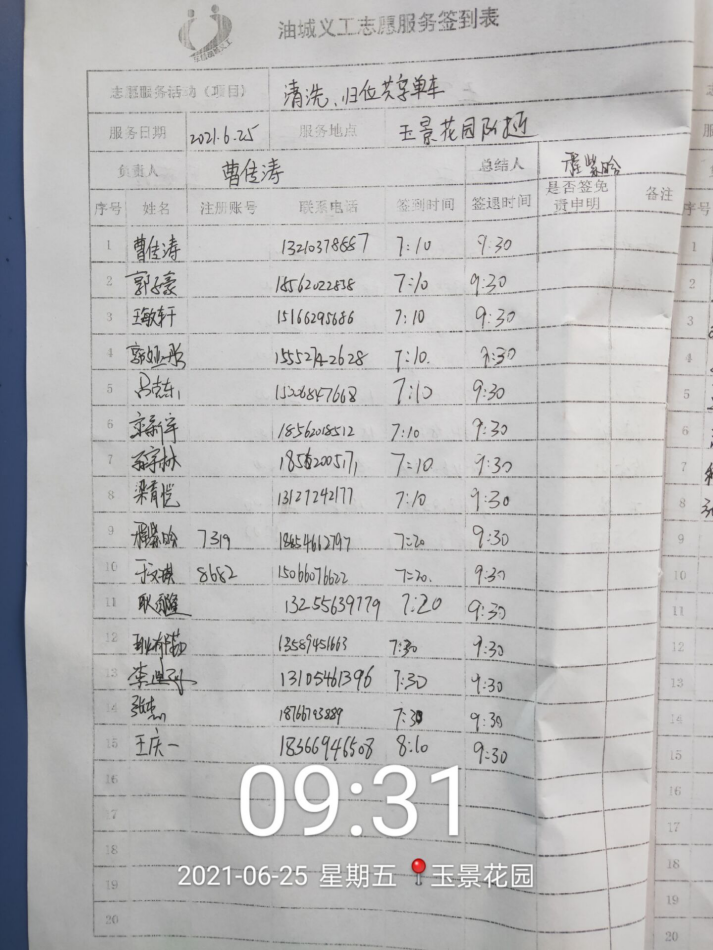 油城义工志愿服务签到表
志愿服务活动（项目） 清洗、归位共享单车
服务日期 2021.6.25 服务地点 玉景花园附近
负责人 曹佳涛 总结人
序号 姓名 注册账号 联系电话 签到时间 签退时间 是否签免责申明 备注
1 曹佳涛 13210378667 7:10 9:30
2 郭子豪 18562022838 7:10 9:30
3 王敏轩 15166295686 7:10 9:30
4 15552742628 7:10 9:30
5 吕克东 7:10 9:30
6 栾新宇 18562018512 7:10 9:30
7 7:10 9:30
8 梁青恺 13127242177 7:10 9:30
9 7319 18654612797 7:20 9:30
10 8682 15066076622 7:20. 9:30
11 13255639779 7:20 9:30
12 13589451663 7:30 9:30
13 13105461396 7:30 9:30
14 张杰 18766793889 7:30 9:30
15 王庆一 18366946508 8:10 9:30
16
17
18
19
20
09:31
2021-06-25 星期五 玉景花园
序号
1
2
3
4
5
6
7
8
9
10
11
12
13
14
15
17
18
19
20